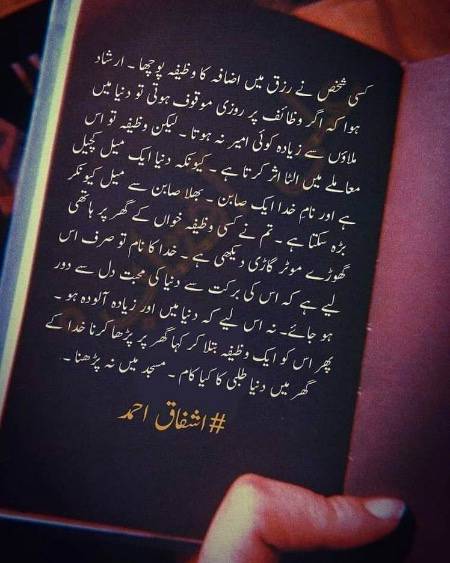 کسی شخص نے رزق میں اضافہ کا وظیفہ پوچھا ۔ ارشاد
ہوا کہ اگر وظائف پر روزی موقوف ہوتی تو دنیا میں
ملاؤں سے زیادہ کوئی امیر نہ ہوتا ۔ لیکن وظیفہ تو اس
معاملے میں الٹا اثر کرتا ہے ۔ کیونکہ دنیا ایک میل کچیل
ہے اور نام خدا ایک صابن ۔ بھلا صابن سے میل کیونکر
بڑہ سکتا ہے ۔ تم نے کسی وظیفہ خواں کے گھر پر ہاتھی
گھوڑے موٹر گاڑی دیکھی ہے ۔ خدا کا نام تو صرف اس
لیے ہے کہ اس کی برکت سے دنیا کی محبت دل سے دور
ہو جائے ۔ نہ اس لیے کہ دنیا میں اور زیادہ آلودہ ہو ۔
پھر اس کو ایک وظیفہ بتلا کر کہا گھر پر پڑھا کرنا خدا کے
گھر میں دنیا طلبی کا کیا کام ۔ مسجد میں نہ پڑھنا ۔
#اشفاق احمد